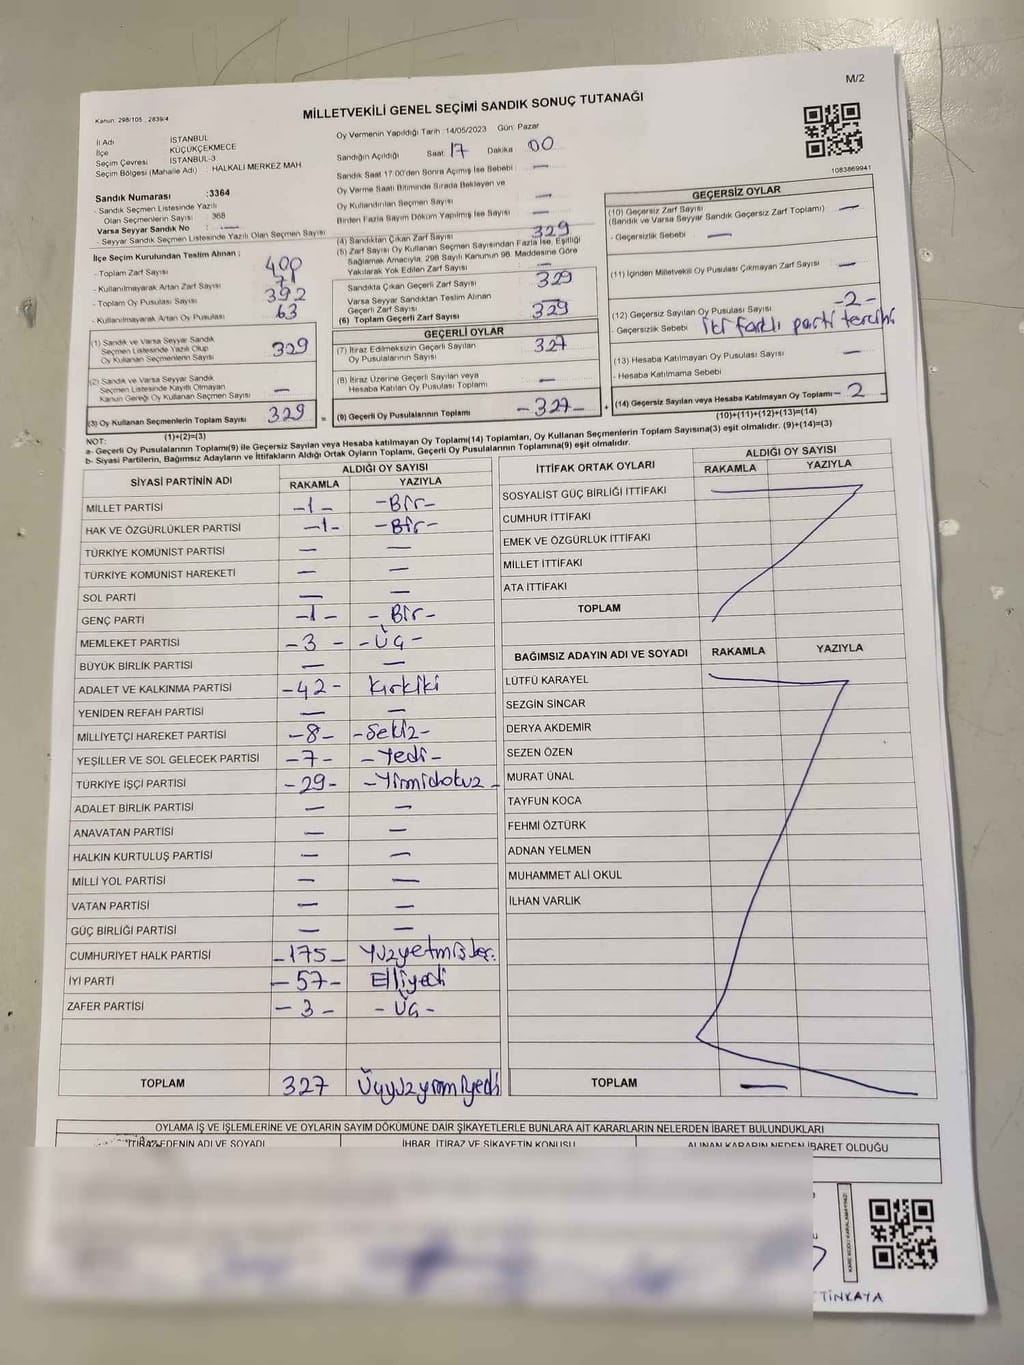 M/2
MİLLETVEKİLİ GENEL SEÇİMİ SANDIK SONUÇ TUTANAĞI
Kanun: 298/105 , 2839/4
İl Adı İSTANBUL
İlçe KÜÇÜKÇEKMECE
Seçim Çevresi İSTANBUL-3
Seçim Bölgesi (Mahalle Adı) HALKALI MERKEZ MAH.
Sandık Numarası :3364
- Sandık Seçmen Listesinde Yazılı
Olan Seçmenlerin Sayısı : 368
Varsa Seyyar Sandık No : —
- Seyyar Sandık Seçmen Listesinde Yazılı Olan Seçmen Sayısı
İlçe Seçim Kurulundan Teslim Alınan ;
- Toplam Zarf Sayısı 400
- Kullanılmayarak Artan Zarf Sayısı 71
- Toplam Oy Pusulası Sayısı 392
- Kullanılmayarak Artan Oy Pusulası 63
(1) Sandık ve Varsa Seyyar Sandık
Seçmen Listesinde Yazılı Olup
Oy Kullanan Seçmenlerin Sayısı 329
(2) Sandık ve Varsa Seyyar Sandık
Seçmen Listesinde Kayıtlı Olmayan
Kanun Gereği Oy Kullanan Seçmen Sayısı —
(3) Oy Kullanan Seçmenlerin Toplam Sayısı 329 =
(1)+(2)=(3)
Oy Vermenin Yapıldığı Tarih :14/05/2023 Gün: Pazar
Sandığın Açıldığı Saat 17 Dakika 00
Sandık Saat 17:00'den Sonra Açmış İse Sebebi —
Oy Verme Saati Bitiminde Sırada Bekleyen ve
Oy Kullandırılan Seçmen Sayısı —
Birden Fazla Sayım Döküm Yapılmış İse Sayısı —
(4) Sandıktan Çıkan Zarf Sayısı 329
(5) Zarf Sayısı Oy Kullanan Seçmen Sayısından Fazla İse, Eşitliği
Sağlamak Amacıyla, 298 Sayılı Kanunun 98. Maddesine Göre
Yakılarak Yok Edilen Zarf Sayısı —
Sandıkta Çıkan Geçerli Zarf Sayısı 329
Varsa Seyyar Sandıktan Teslim Alınan
Geçerli Zarf Sayısı —
(6) Toplam Geçerli Zarf Sayısı 329
GEÇERLİ OYLAR
(7) İtiraz Edilmeksizin Geçerli Sayılan
Oy Pusulalarının Sayısı 327
(8) İtiraz Üzerine Geçerli Sayılan veya
Hesaba Katılan Oy Pusulası Toplamı —
(9) Geçerli Oy Pusulalarının Toplamı -327- +
1083869941
GEÇERSİZ OYLAR
(10) Geçersiz Zarf Sayısı
(Sandık ve Varsa Seyyar Sandık Geçersiz Zarf Toplamı) —
- Geçersizlik Sebebi —
(11) İçinden Milletvekili Oy Pusulası Çıkmayan Zarf Sayısı —
(12) Geçersiz Sayılan Oy Pusulası Sayısı -2-
- Geçersizlik Sebebi iki farklı parti tercihi
(13) Hesaba Katılmayan Oy Pusulası Sayısı —
- Hesaba Katılmama Sebebi
(14) Geçersiz Sayılan veya Hesaba Katılmayan Oy Toplamı - 2
(10)+(11)+(12)+(13)=(14)
NOT:
a- Geçerli Oy Pusulalarının Toplamı(9) ile Geçersiz Sayılan veya Hesaba katılmayan Oy Toplamı(14) Toplamları, Oy Kullanan Seçmenlerin Toplam Sayısına(3) eşit olmalıdır. (9)+(14)=(3)
b- Siyasi Partilerin, Bağımsız Adayların ve İttifakların Aldığı Ortak Oyların Toplamı, Geçerli Oy Pusulalarının Toplamına(9) eşit olmalıdır.
SİYASİ PARTİNİN ADI ALDIĞI OY SAYISI
RAKAMLA YAZIYLA
MİLLET PARTİSİ -1- -Bir-
HAK VE ÖZGÜRLÜKLER PARTİSİ -1- -Bir-
TÜRKİYE KOMÜNİST PARTİSİ — —
TÜRKİYE KOMÜNİST HAREKETİ — —
SOL PARTİ — —
GENÇ PARTİ -1- -Bir-
MEMLEKET PARTİSİ -3- -Üç-
BÜYÜK BİRLİK PARTİSİ — —
ADALET VE KALKINMA PARTİSİ -42- Kırkiki
YENİDEN REFAH PARTİSİ — —
MİLLİYETÇİ HAREKET PARTİSİ -8- -Sekiz-
YEŞİLLER VE SOL GELECEK PARTİSİ -7- -Yedi-
TÜRKİYE İŞÇİ PARTİSİ -29- -Yirmidokuz-
ADALET BİRLİK PARTİSİ — —
ANAVATAN PARTİSİ — —
HALKIN KURTULUŞ PARTİSİ — —
MİLLİ YOL PARTİSİ — —
VATAN PARTİSİ — —
GÜÇ BİRLİĞİ PARTİSİ — —
CUMHURİYET HALK PARTİSİ -175- Yüzyetmişbeş.
İYİ PARTİ -57- Elliyedi
ZAFER PARTİSİ -3- -Üç-
TOPLAM 327 Üçyüzyirmiyedi
İTTİFAK ORTAK OYLARI ALDIĞI OY SAYISI
RAKAMLA YAZIYLA
SOSYALİST GÜÇ BİRLİĞİ İTTİFAKI
CUMHUR İTTİFAKI
EMEK VE ÖZGÜRLÜK İTTİFAKI
MİLLET İTTİFAKI
ATA İTTİFAKI
TOPLAM
BAĞIMSIZ ADAYIN ADI VE SOYADI RAKAMLA YAZIYLA
LÜTFÜ KARAYEL
SEZGİN SİNCAR
DERYA AKDEMİR
SEZEN ÖZEN
MURAT ÜNAL
TAYFUN KOCA
FEHMİ ÖZTÜRK
ADNAN YELMEN
MUHAMMET ALİ OKUL
İLHAN VARLIK
TOPLAM —
OYLAMA İŞ VE İŞLEMLERİNE VE OYLARIN SAYIM DÖKÜMÜNE DAİR ŞİKAYETLERLE BUNLARA AİT KARARLARIN NELERDEN İBARET BULUNDUKLARI
İTİRAZ EDENİN ADI VE SOYADI İHBAR, İTİRAZ VE ŞİKAYETİN KONUSU ALINAN KARARIN NEDEN İBARET OLDUĞU
KARE KODU KARALAMAYINIZ!
TİNKAYA